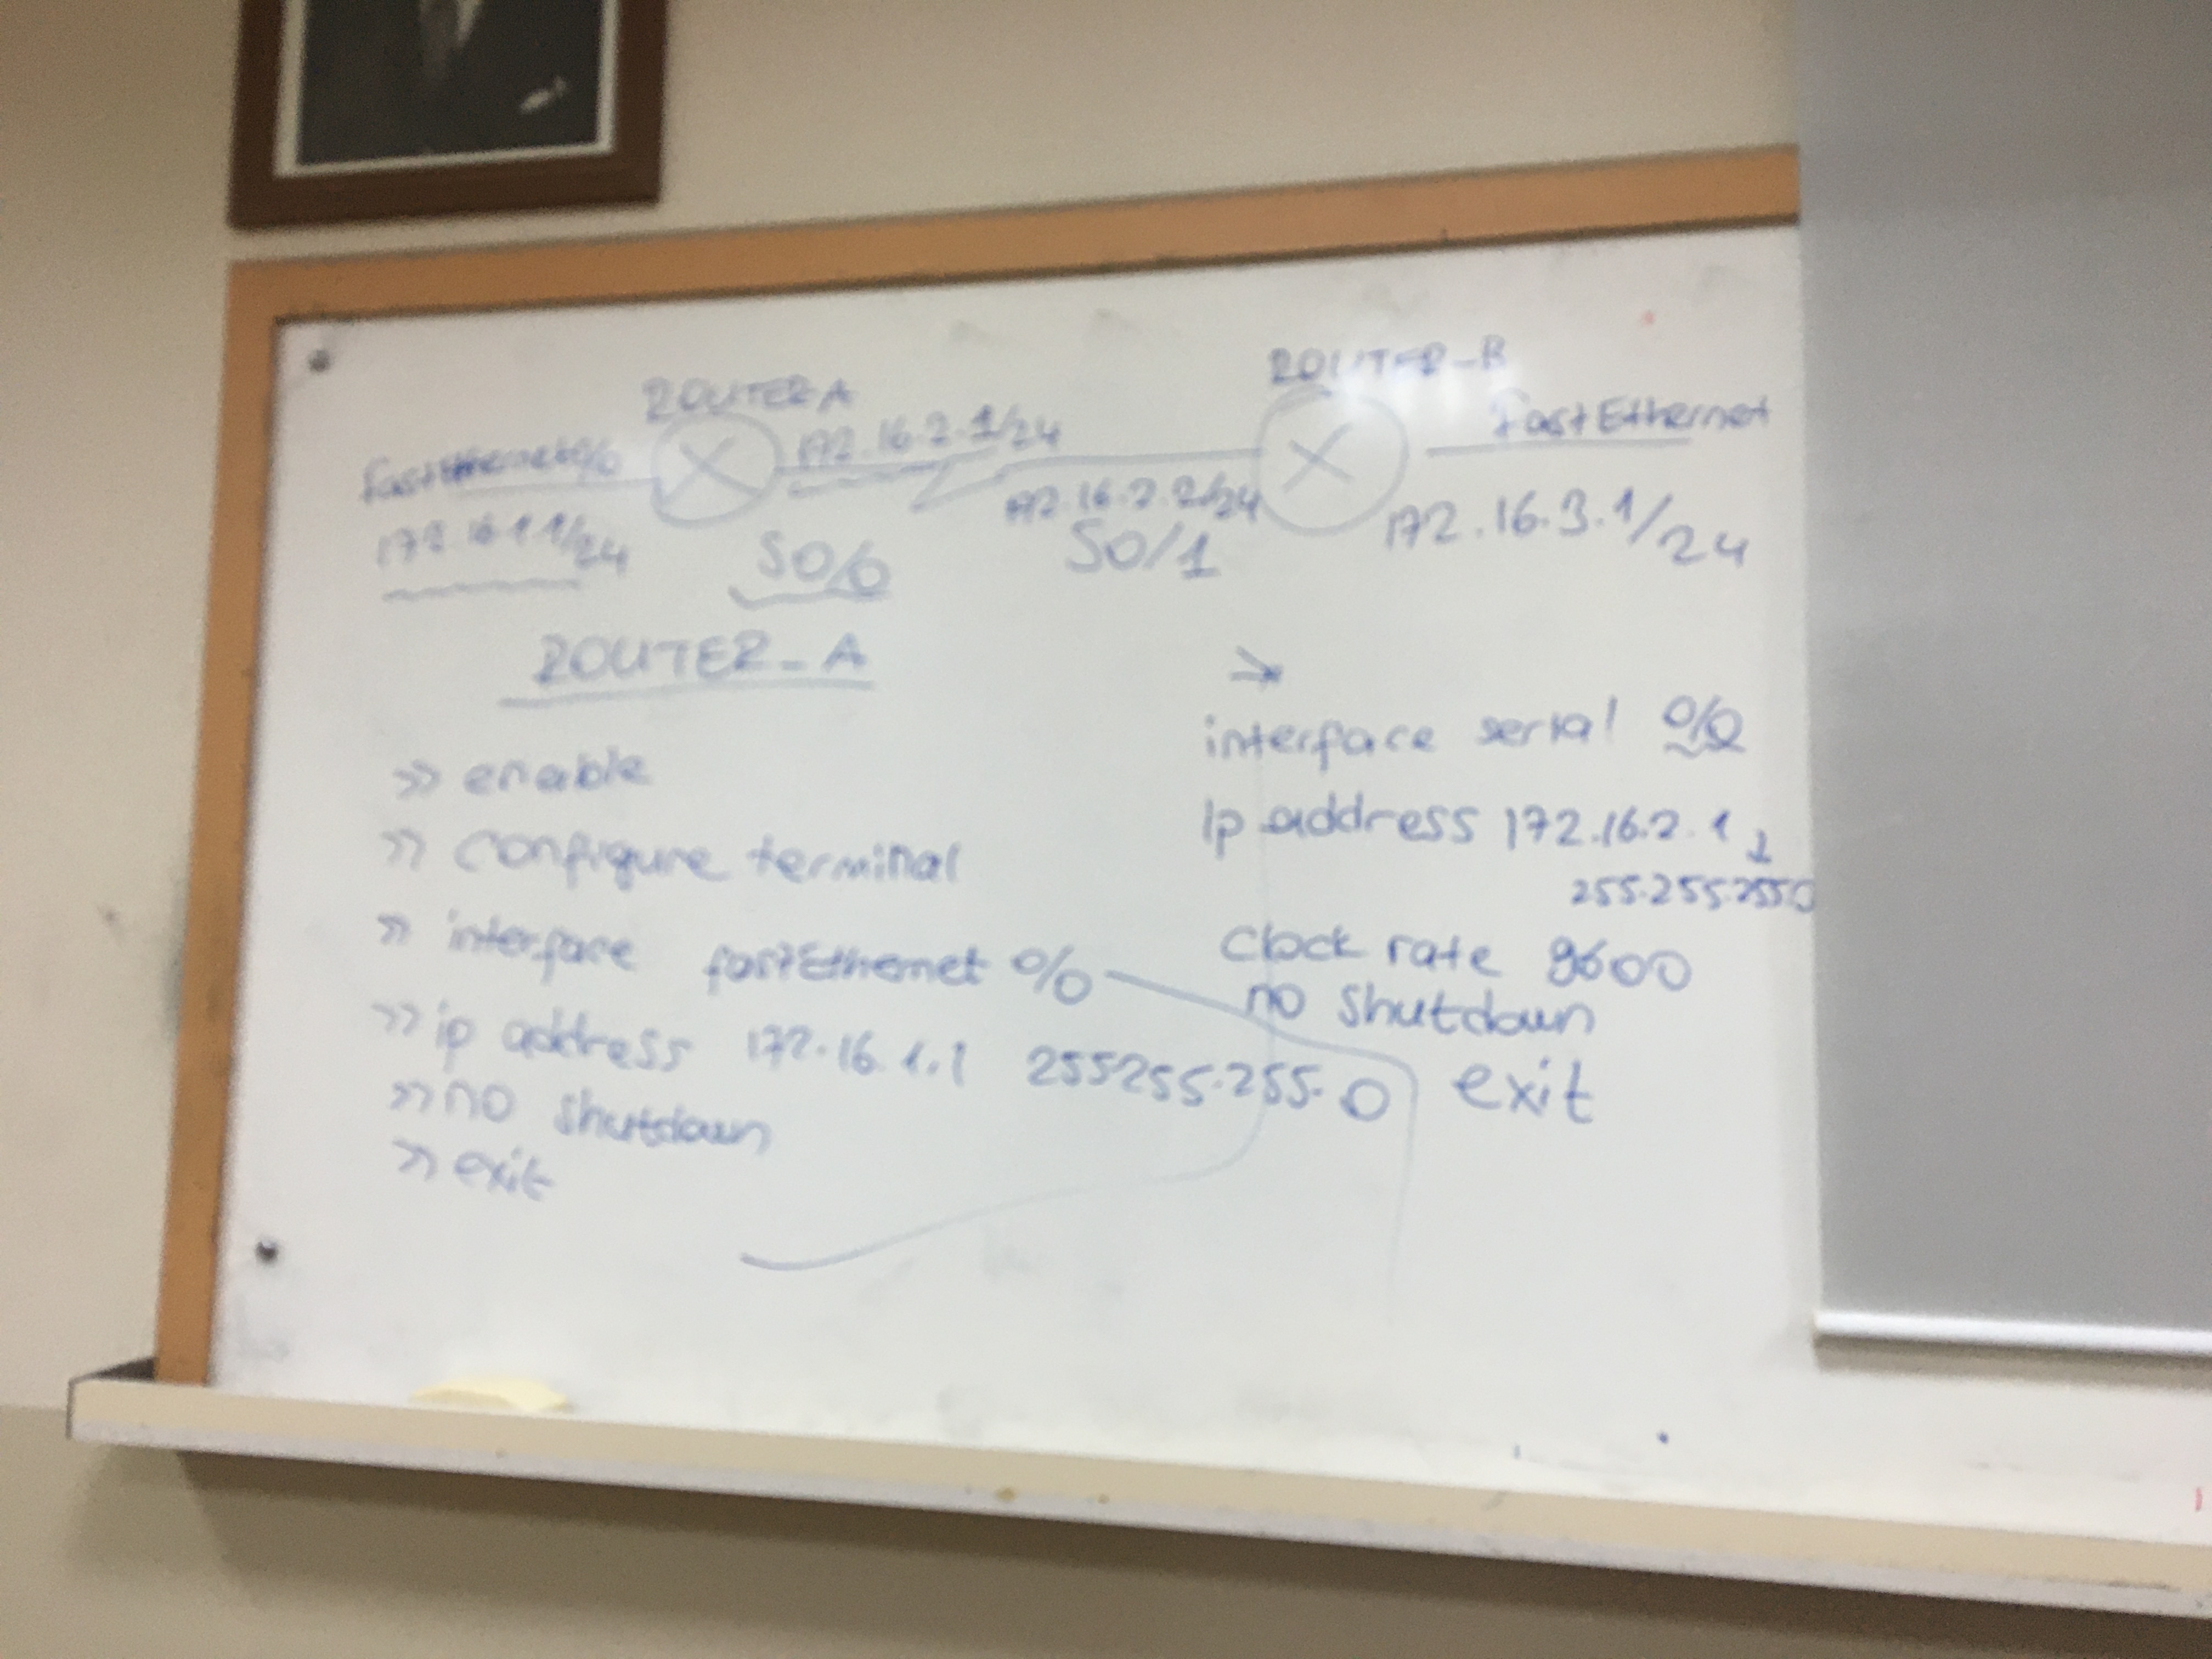 ROUTER A
ROUTER-B
FastEthernet 0/0
172.16.2.1/24
FastEthernet
172.16.1.1/24
172.16.2.2/24
172.16.3.1/24
S0/0
S0/1
ROUTER_A
>> enable
>> configure terminal
>> interface fastEthernet 0/0
>> ip address 172.16.1.1 255255.255.0
>> no shutdown
>> exit
interface serial 0/0
Ip address 172.16.2.1
255.255.255.0
Clock rate 9600
no shutdown
exit